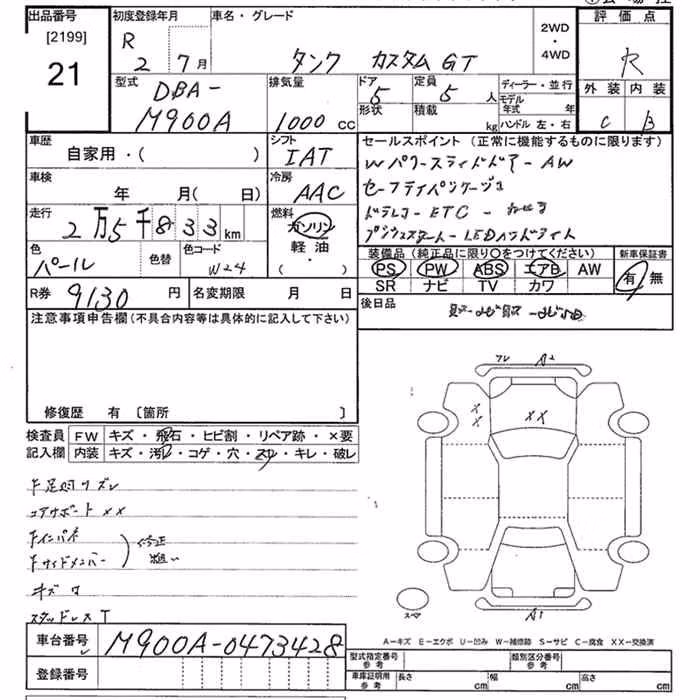 出品番号 初度登録年月 車名・グレード 2WD・4WD 評価点
[2199]
21
R 2 7月 タンク カスタムGT R
型式 DBA-M900A
排気量 1000 CC
ドア 5
形状
定員 5 人
積載 kg
ディーラー・並行
モデル年式 年
ハンドル 左・右
外装 内装
C B
車歴 自家用・( )
シフト IAT
車検 年 月( 日)
冷房 AAC
走行 2万5千833km
燃料 ガソリン
軽油
・( )
色 パール 色替 色コード W24
R券 9130円 名変期限 月 日
セールスポイント(正常に機能するものに限ります)
Wパワースライドドアー AW
ドラレコ-ETC-
プッシュスタート-LEDヘッドライト
装備品(純正品に限り〇をつけてください) 新車保証書
PS PW ABS エアB AW 有・無
SR ナビ TV カワ
後日品
注意事項申告欄(不具合内容等は具体的に記入して下さい)
修復歴 有 〔箇所 〕
検査員 FW キズ・飛石・ヒビ割・リペア跡・×要
記入欄 内装 キズ・汚れ・コゲ・穴・スリ・キレ・破レ
コアサポート XX
修正
キズ ワ
スタッドレスT
フレ A2
XX
XX
A1
スペア
A-キズ E-エクボ U-凹み W-補修跡 S-サビ C-腐食 XX-交換済
車台番号 M900A-0473428
登録番号
型式指定番号 参考 類別区分番号 参考
車庫証明用 参考 長さ cm 幅 cm 高さ cm